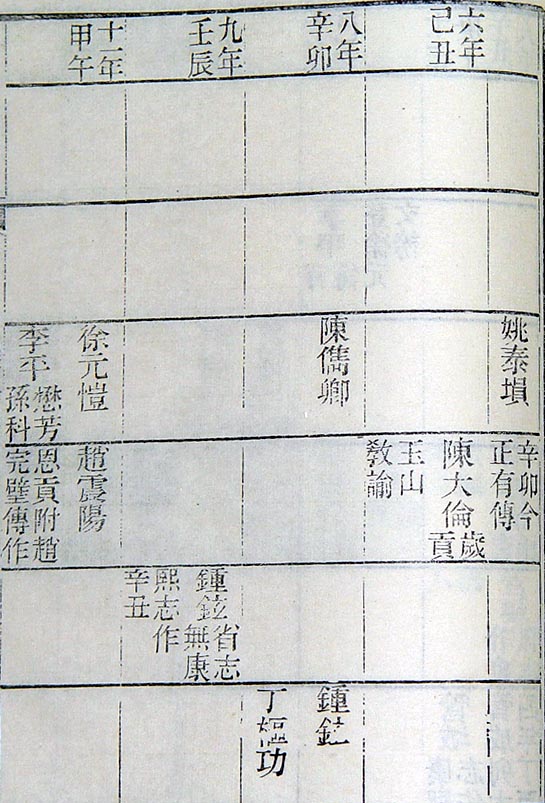 六年
己丑
八年
辛卯
九年
壬辰
十一年
甲午
姚泰塤
陳儁卿
徐元愷
李平
懋芳
孫科
辛卯今
正有傳
陳大倫
歲
貢
玉山
敎諭
趙震陽
恩貢附趙
完璧傳作
鍾鉉
省志
無康
熙志作
辛丑
鍾鉉
丁 功